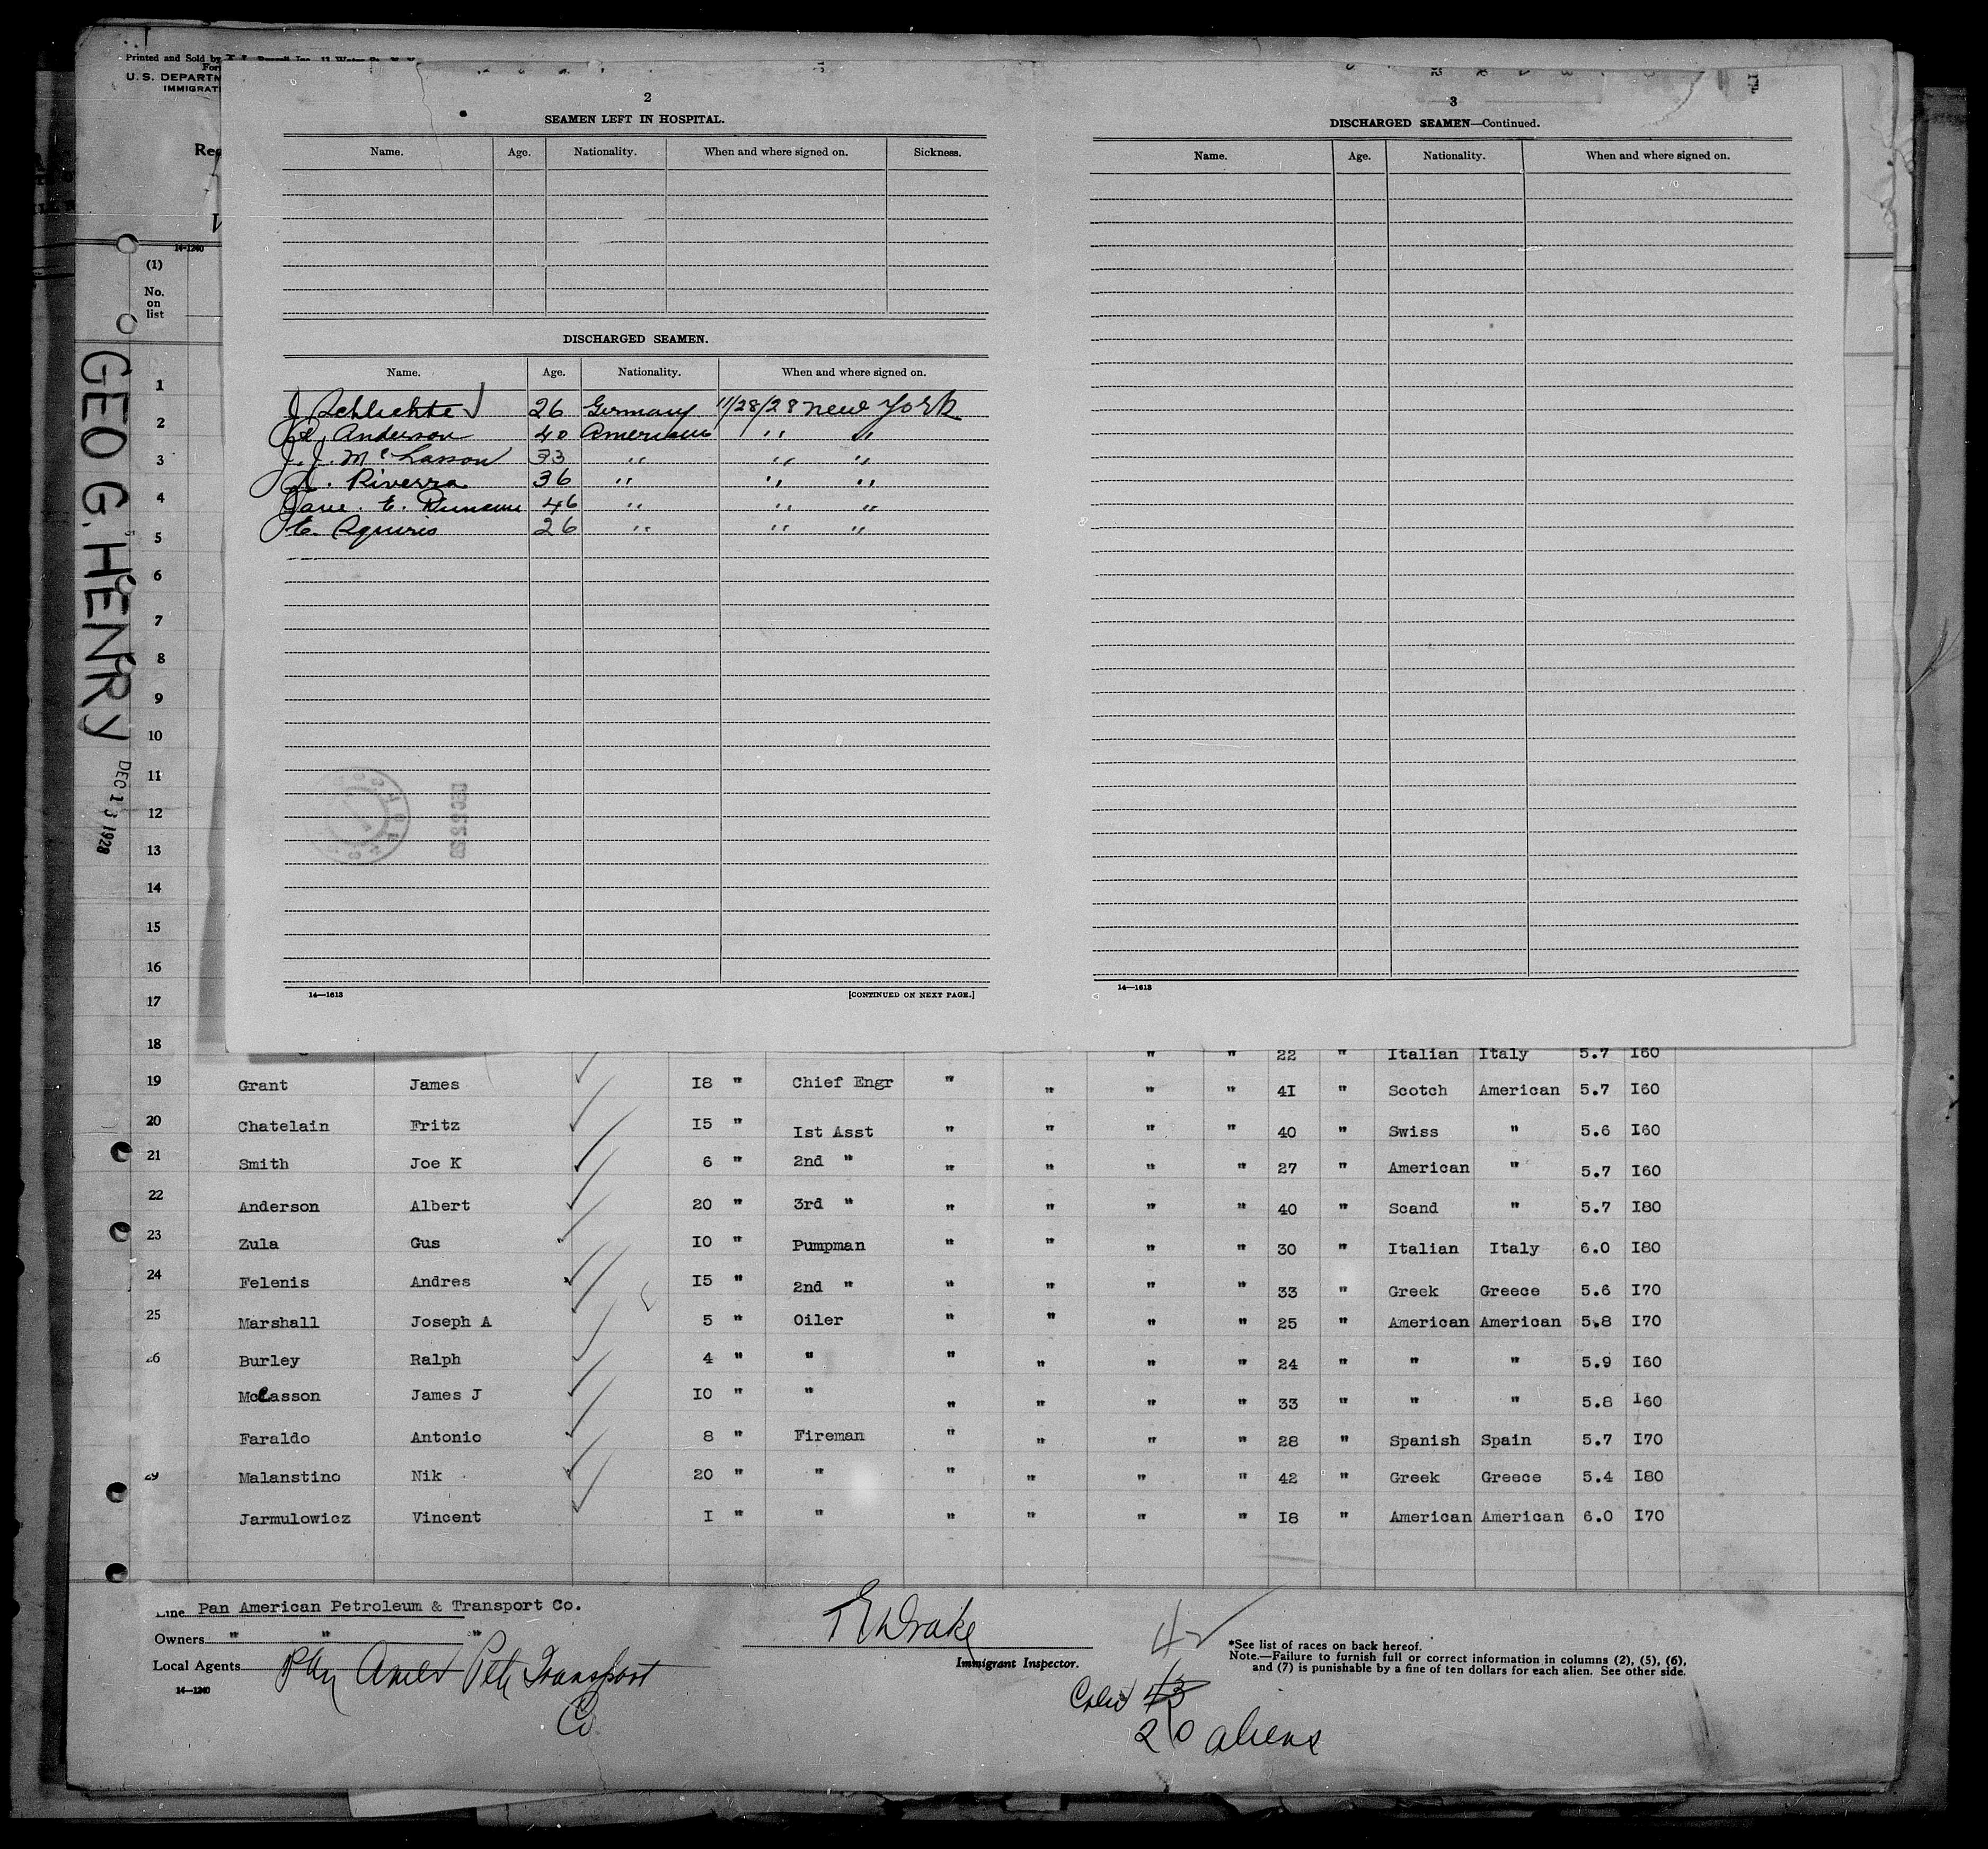 Printed and Sold by
U. S. DEPARTM
IMMIGRATI
Req
14-1240
(1)
No.
on
list
GEO G. HENRY
DEC 13 1928
2
SEAMEN LEFT IN HOSPITAL.
Name. Age. Nationality. When and where signed on. Sickness.
DISCHARGED SEAMEN.
Name. Age. Nationality. When and where signed on.
J Schlichte 26 Germany 11/28/28 new York
Anderson 40 American " "
J. J. McLasson 33 " " "
A. Riverra 36 " " "
E. Duncan 46 " " "
E. Aquiris 26 " " "
14—1613 [CONTINUED ON NEXT PAGE.]
3
DISCHARGED SEAMEN—Continued.
Name. Age. Nationality. When and where signed on.
14—1613
1
2
3
4
5
6
7
8
9
10
11
12
13
14
15
16
17
18 " " 22 " Italian Italy 5.7 I60
19 Grant James I8 " Chief Engr " " " " 4I " Scotch American 5.7 I60
20 Chatelain Fritz I5 " Ist Asst " " " " 40 " Swiss " 5.6 I60
21 Smith Joe K 6 " 2nd " " " " " 27 " American " 5.7 I60
22 Anderson Albert 20 " 3rd " " " " " 40 " Scand " 5.7 I80
23 Zula Gus IO " Pumpman " " " " 30 " Italian Italy 6.0 I80
24 Felenis Andres I5 " 2nd " " " " " 33 " Greek Greece 5.6 I70
25 Marshall Joseph A 5 " Oiler " " " " 25 " American American 5.8 I70
26 Burley Ralph 4 " " " " " " 24 " " " 5.9 I60
McLasson James J IO " " " " " " 33 " " " 5.8 I60
Faraldo Antonio 8 " Fireman " " " " 28 " Spanish Spain 5.7 I70
29 Malanstino Nik 20 " " " " " " 42 " Greek Greece 5.4 I80
Jarmulowicz Vincent I " " " " " " I8 " American American 6.0 I70
Line Pan American Petroleum & Transport Co.
Owners " " "
Local Agents Pan Amer Pete Transport
Co
14—1240
Drake
Immigrant Inspector.
42
43
20 aliens
*See list of races on back hereof.
Note.—Failure to furnish full or correct information in columns (2), (5), (6),
and (7) is punishable by a fine of ten dollars for each alien. See other side.